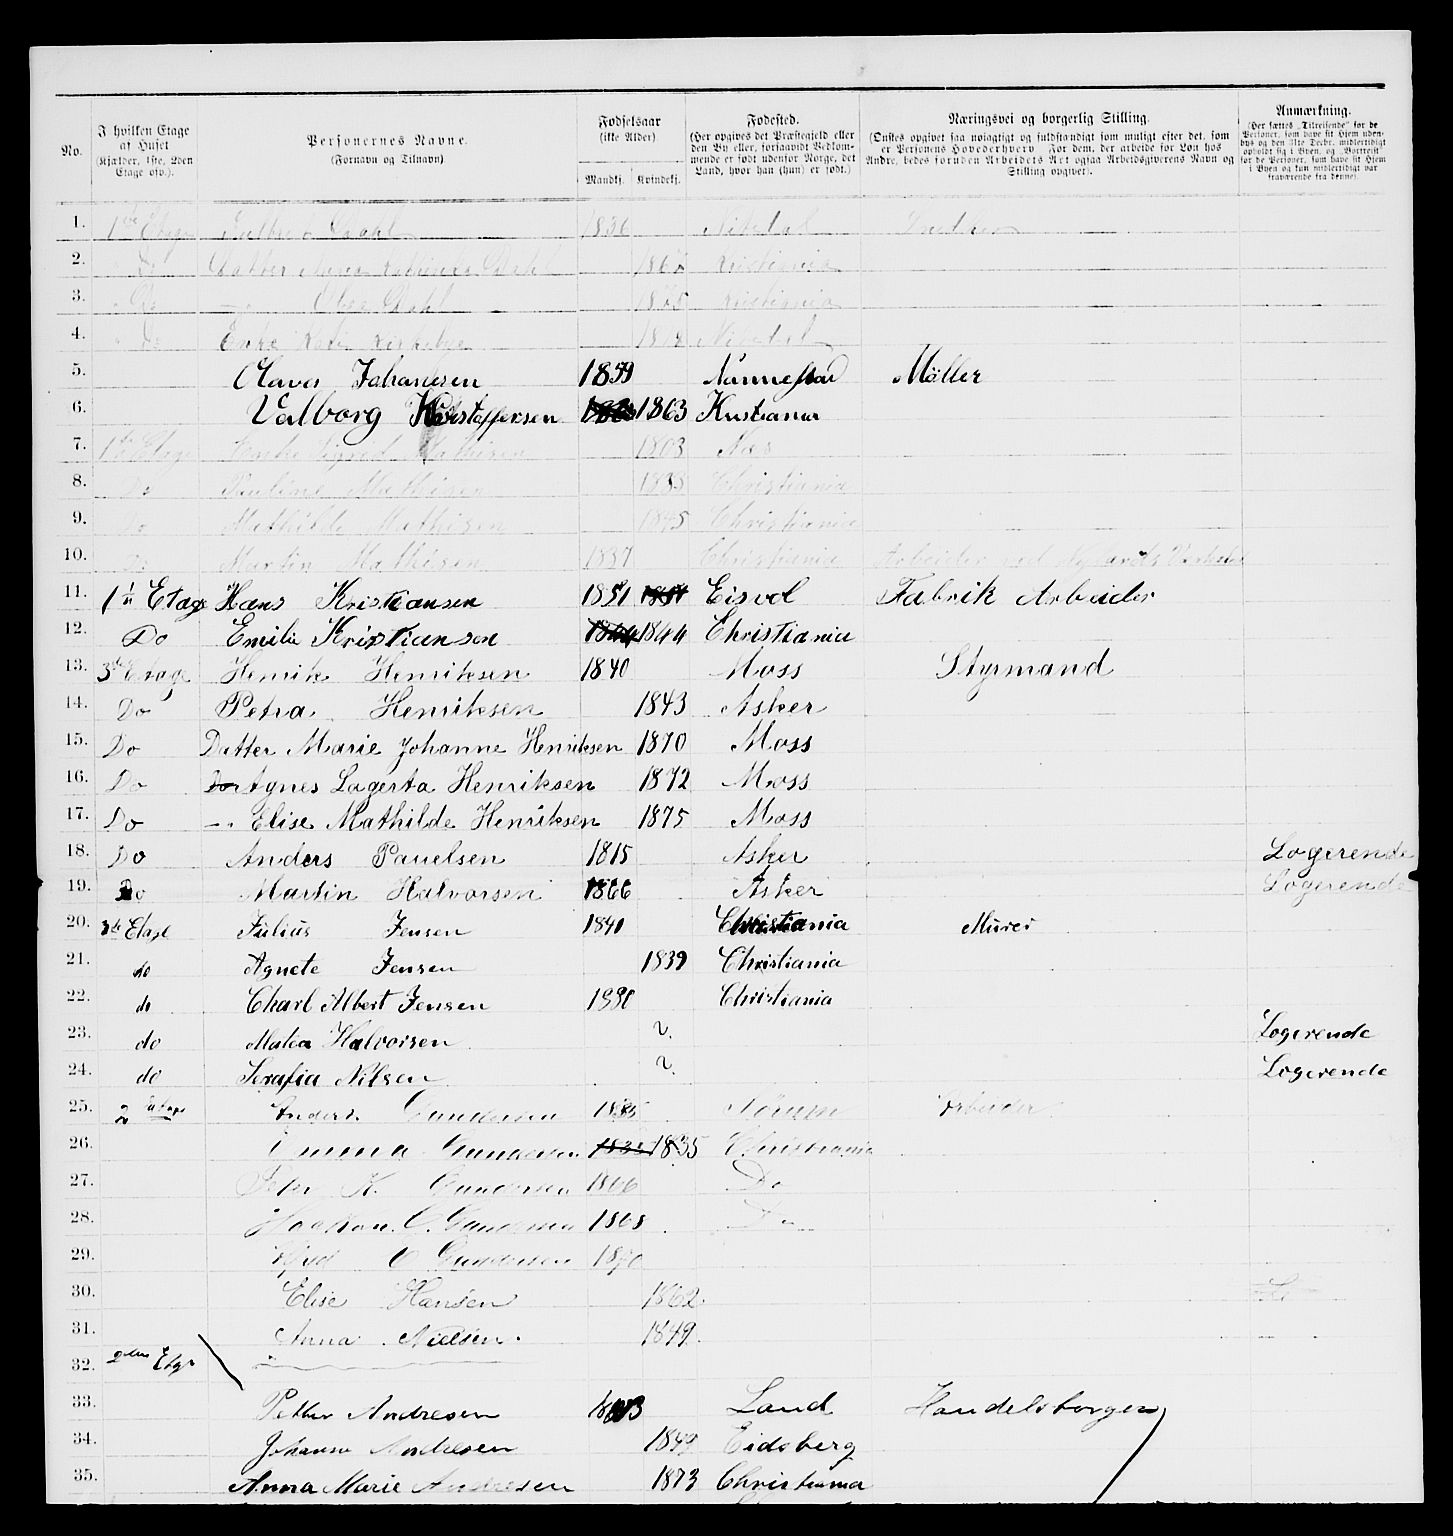 No.
I hvilken Etage af Huset (Kjælder, 1ste, 2den Etage osv.).
Personernes Navne. (Fornavn og Tilnavn).
Fødselsaar (ikke Alder)
Mandkj. Kvindekj.
Fødested. (Her opgives det Præstegjeld eller den By eller, forsaavidt Vedkommende er født udenfor Norge, det Land, hvor han (hun) er født.)
Næringsvei og borgerlig Stilling. (Ønskes opgivet saa nøiagtigt og fuldstændigt som muligt efter det, som er Personens Hovederhverv. For dem, der arbeide for Løn hos Andre, bedes foruden Arbeidets Art ogsaa Arbeidsgiverens Navn og Stilling opgivet).
Anmærkning. (Her sættes „Tilreisende" for de Personer, som have sit Hjem udenbys og den 31te Decbr. midlertidigt opholdt sig i Byen, og „Bortreist" for de Personer, som have sit Hjem i Byen og kun midlertidigt var fraværende fra denne).
1. 1ste Etage Dahl 1836 Nitedal
2. Do Datter Anna Dahl Kristiania
3. Do Dahl Kristiania
4. Do Enke Nitedal
5. Olava Johansen 1859 Nannestad Möller
6. Valborg Kristoffersen 1863 Kristiania
7. 1ste Etage Enke Sigrid Mathisen 1803 Næs
8. Do Pauline Mathisen 1835 Christiania
9. Do Mathilde Mathisen 1845 Christiania
10. Do Martin Mathisen 1837 Christiania Arbeider ved Nylands Værksted
11. 1ste Etage Hans Kristiansen 1851 Eisvol Fabrik Arbeider
12. Do Emilie Kristiansen 1844 1844 Christiania
13. 3de Etage Henrik Henriksen 1840 Moss Styrmand
14. Do Petra Henriksen 1843 Asker
15. Do Datter Marie Johanne Henriksen 1870 Moss
16. Do Agnes Lagerta Henriksen 1872 Moss
17. Do —. Elise Mathilde Henriksen 1875 Moss
18. Do Anders Pauelsen 1815 Asker Logerende
19. Do Martin Halvorsen 1866 Asker Logerende
20. 3de Etage Julius Jensen 1841 Christiania Murer
21. do Agnete Jensen 1839 Christiania
22. do Charl Albert Jensen Christiania
23. do Matea Halvorsen ?. Logerende
24. do Serafia Nilsen ?. Logerende
25. 2 Etage Anders Gundersen 1835 Nørum Arbeider
26. Emma Gundersen 1835 1835 Christiania
27. Peter K. Gundersen 1866 Do
28. Haakon C. Gundersen 1868 Do
29. O Gundersen 1870
30. Elise Hansen 1862
31. Anna Nielsen. 1849
32. 2den Etge
33. Petter Andresen Land Handelsborger
34. Johanne Andresen 1849 Eidsberg
35. Anna Marie Andresen 1873 Christiania